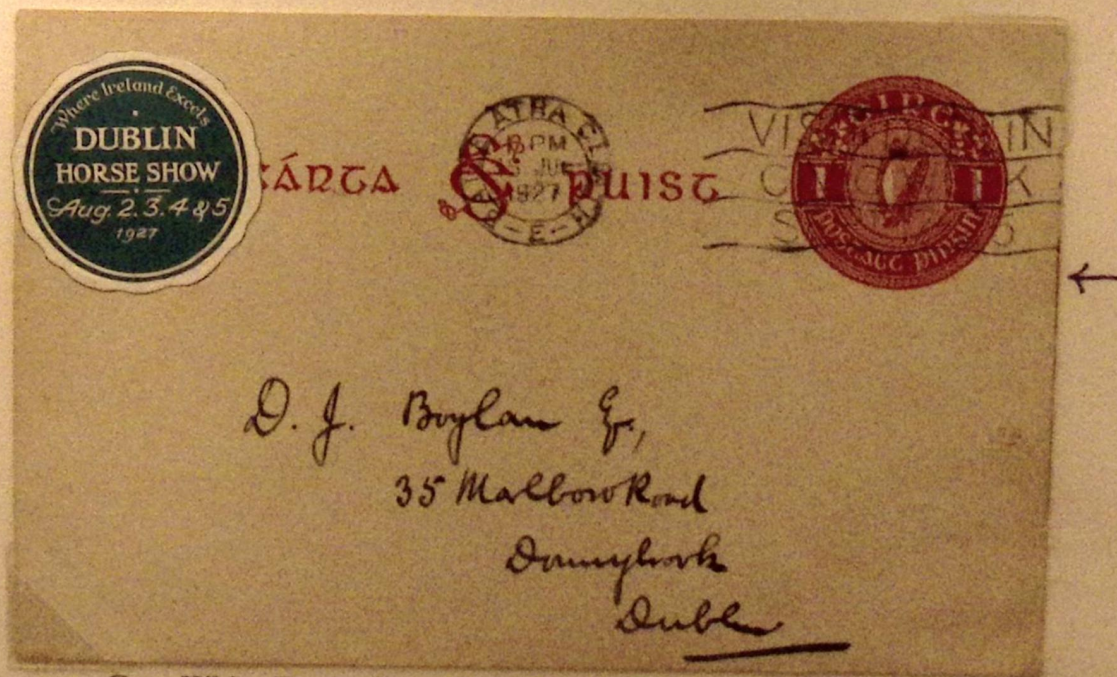 Where Ireland Excels
DUBLIN
HORSE SHOW
Aug. 2. 3. 4 & 5
1927
CÁRTA
SÉ
PUIST
ÁTHA CL
PM
1927
E
ÉIRE
1 1
PINGIN
D. J. Boylan Esq.,
35 Marlboro Road
Donnybrook
Dublin